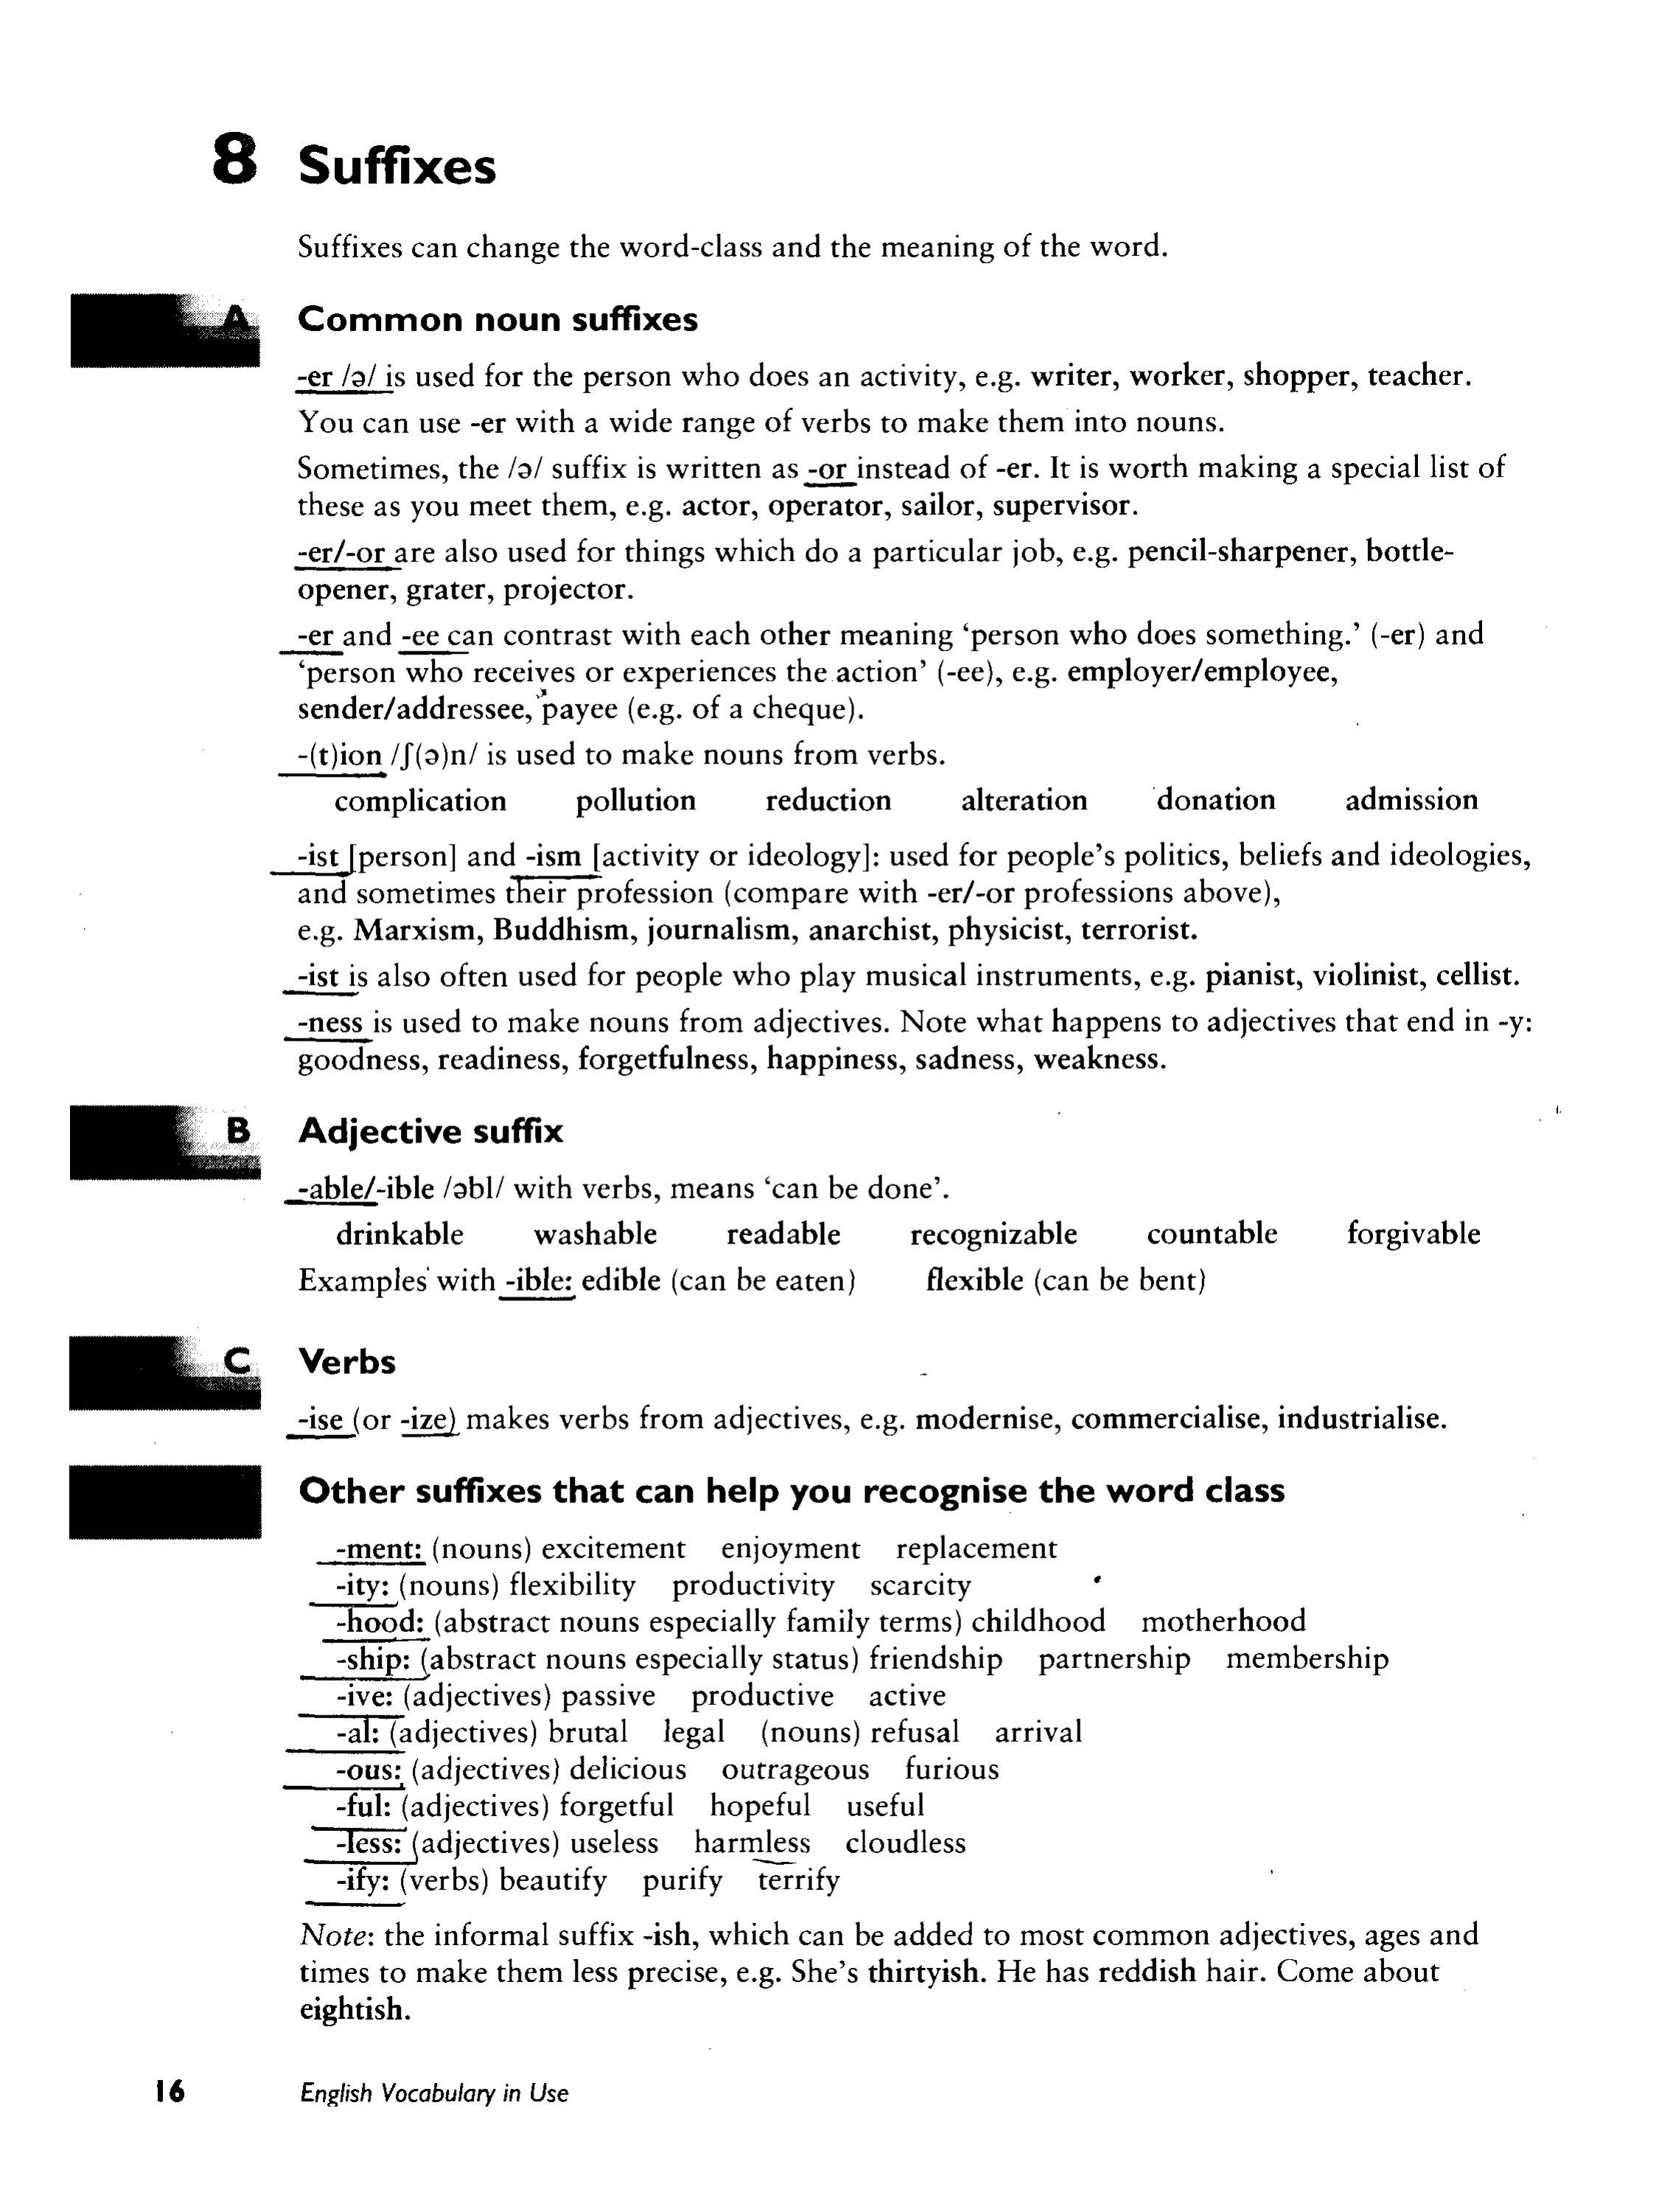 8 Suffixes
Suffixes can change the word-class and the meaning of the word.
A Common noun suffixes
-er /ə/ is used for the person who does an activity, e.g. writer, worker, shopper, teacher.
You can use -er with a wide range of verbs to make them into nouns.
Sometimes, the /ə/ suffix is written as -or instead of -er. It is worth making a special list of
these as you meet them, e.g. actor, operator, sailor, supervisor.
-er/-or are also used for things which do a particular job, e.g. pencil-sharpener, bottle-
opener, grater, projector.
-er and -ee can contrast with each other meaning ‘person who does something.’ (-er) and
‘person who receives or experiences the action’ (-ee), e.g. employer/employee,
sender/addressee, payee (e.g. of a cheque).
-(t)ion /ʃ(ə)n/ is used to make nouns from verbs.
complication pollution reduction alteration donation admission
-ist [person] and -ism [activity or ideology]: used for people’s politics, beliefs and ideologies,
and sometimes their profession (compare with -er/-or professions above),
e.g. Marxism, Buddhism, journalism, anarchist, physicist, terrorist.
-ist is also often used for people who play musical instruments, e.g. pianist, violinist, cellist.
-ness is used to make nouns from adjectives. Note what happens to adjectives that end in -y:
goodness, readiness, forgetfulness, happiness, sadness, weakness.
B Adjective suffix
-able/-ible /əbl/ with verbs, means ‘can be done’.
drinkable washable readable recognizable countable forgivable
Examples with -ible: edible (can be eaten) flexible (can be bent)
C Verbs
-ise (or -ize) makes verbs from adjectives, e.g. modernise, commercialise, industrialise.
Other suffixes that can help you recognise the word class
-ment: (nouns) excitement enjoyment replacement
-ity: (nouns) flexibility productivity scarcity
-hood: (abstract nouns especially family terms) childhood motherhood
-ship: (abstract nouns especially status) friendship partnership membership
-ive: (adjectives) passive productive active
-al: (adjectives) brutal legal (nouns) refusal arrival
-ous: (adjectives) delicious outrageous furious
-ful: (adjectives) forgetful hopeful useful
-less: (adjectives) useless harmless cloudless
-ify: (verbs) beautify purify terrify
Note: the informal suffix -ish, which can be added to most common adjectives, ages and
times to make them less precise, e.g. She’s thirtyish. He has reddish hair. Come about
eightish.
16 English Vocabulary in Use